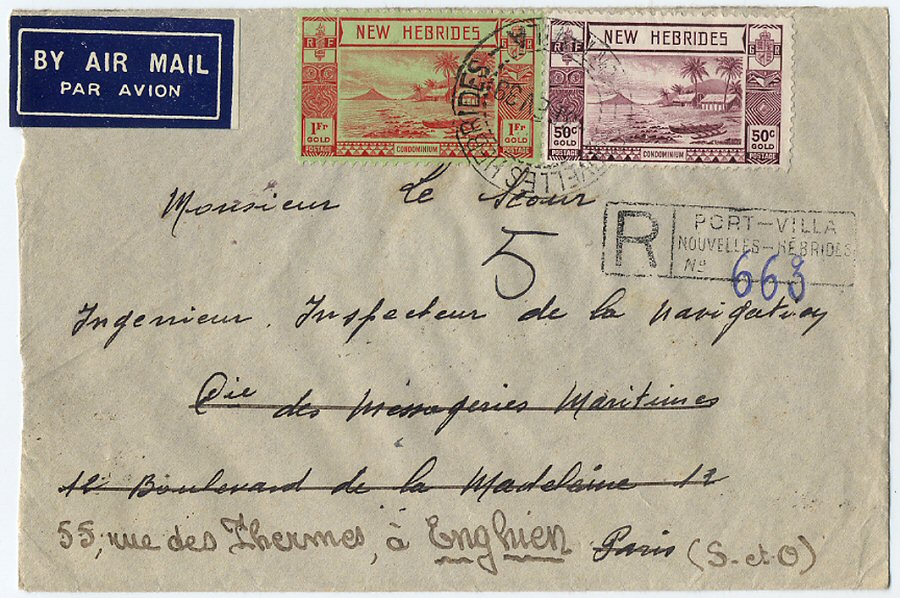 BY AIR MAIL
PAR AVION
RF NEW HEBRIDES GR
1Fr GOLD 1Fr GOLD
POSTAGE CONDOMINIUM POSTAGE
RF NEW HEBRIDES GR
50c GOLD 50c GOLD
POSTAGE CONDOMINIUM POSTAGE
HEBRIDES
Monsieur Le Scour
5
R PORT-VILLA
NOUVELLES-HÉBRIDES
No 663
Ingenieur Inspecteur de la navigation
Cie des Messageries Maritimes
12 Boulevard de la Madeleine 12
55, rue des Thermes, à Enghien Paris (S.-et-O)